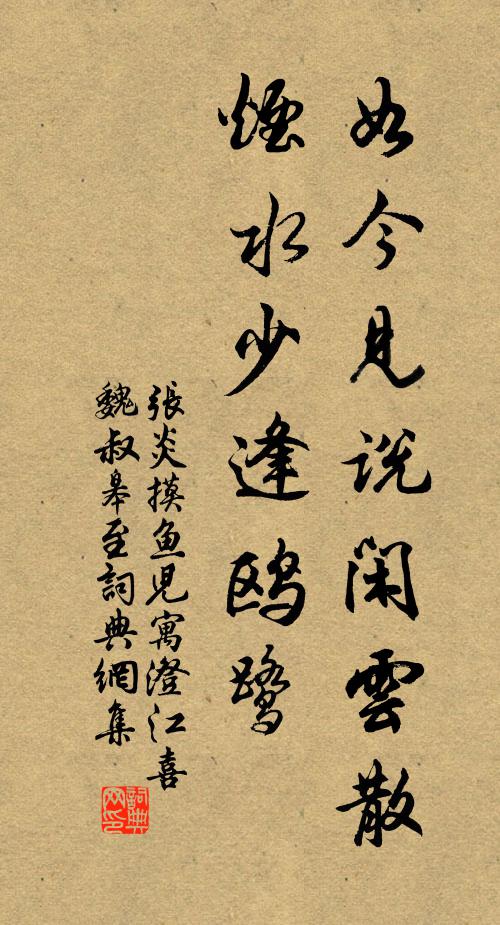 如今見説閑雲散
煙水少逢鷗鷺
張炎摸魚兒寓澄江喜
魏叔皋至詞典網集
詞典
网印